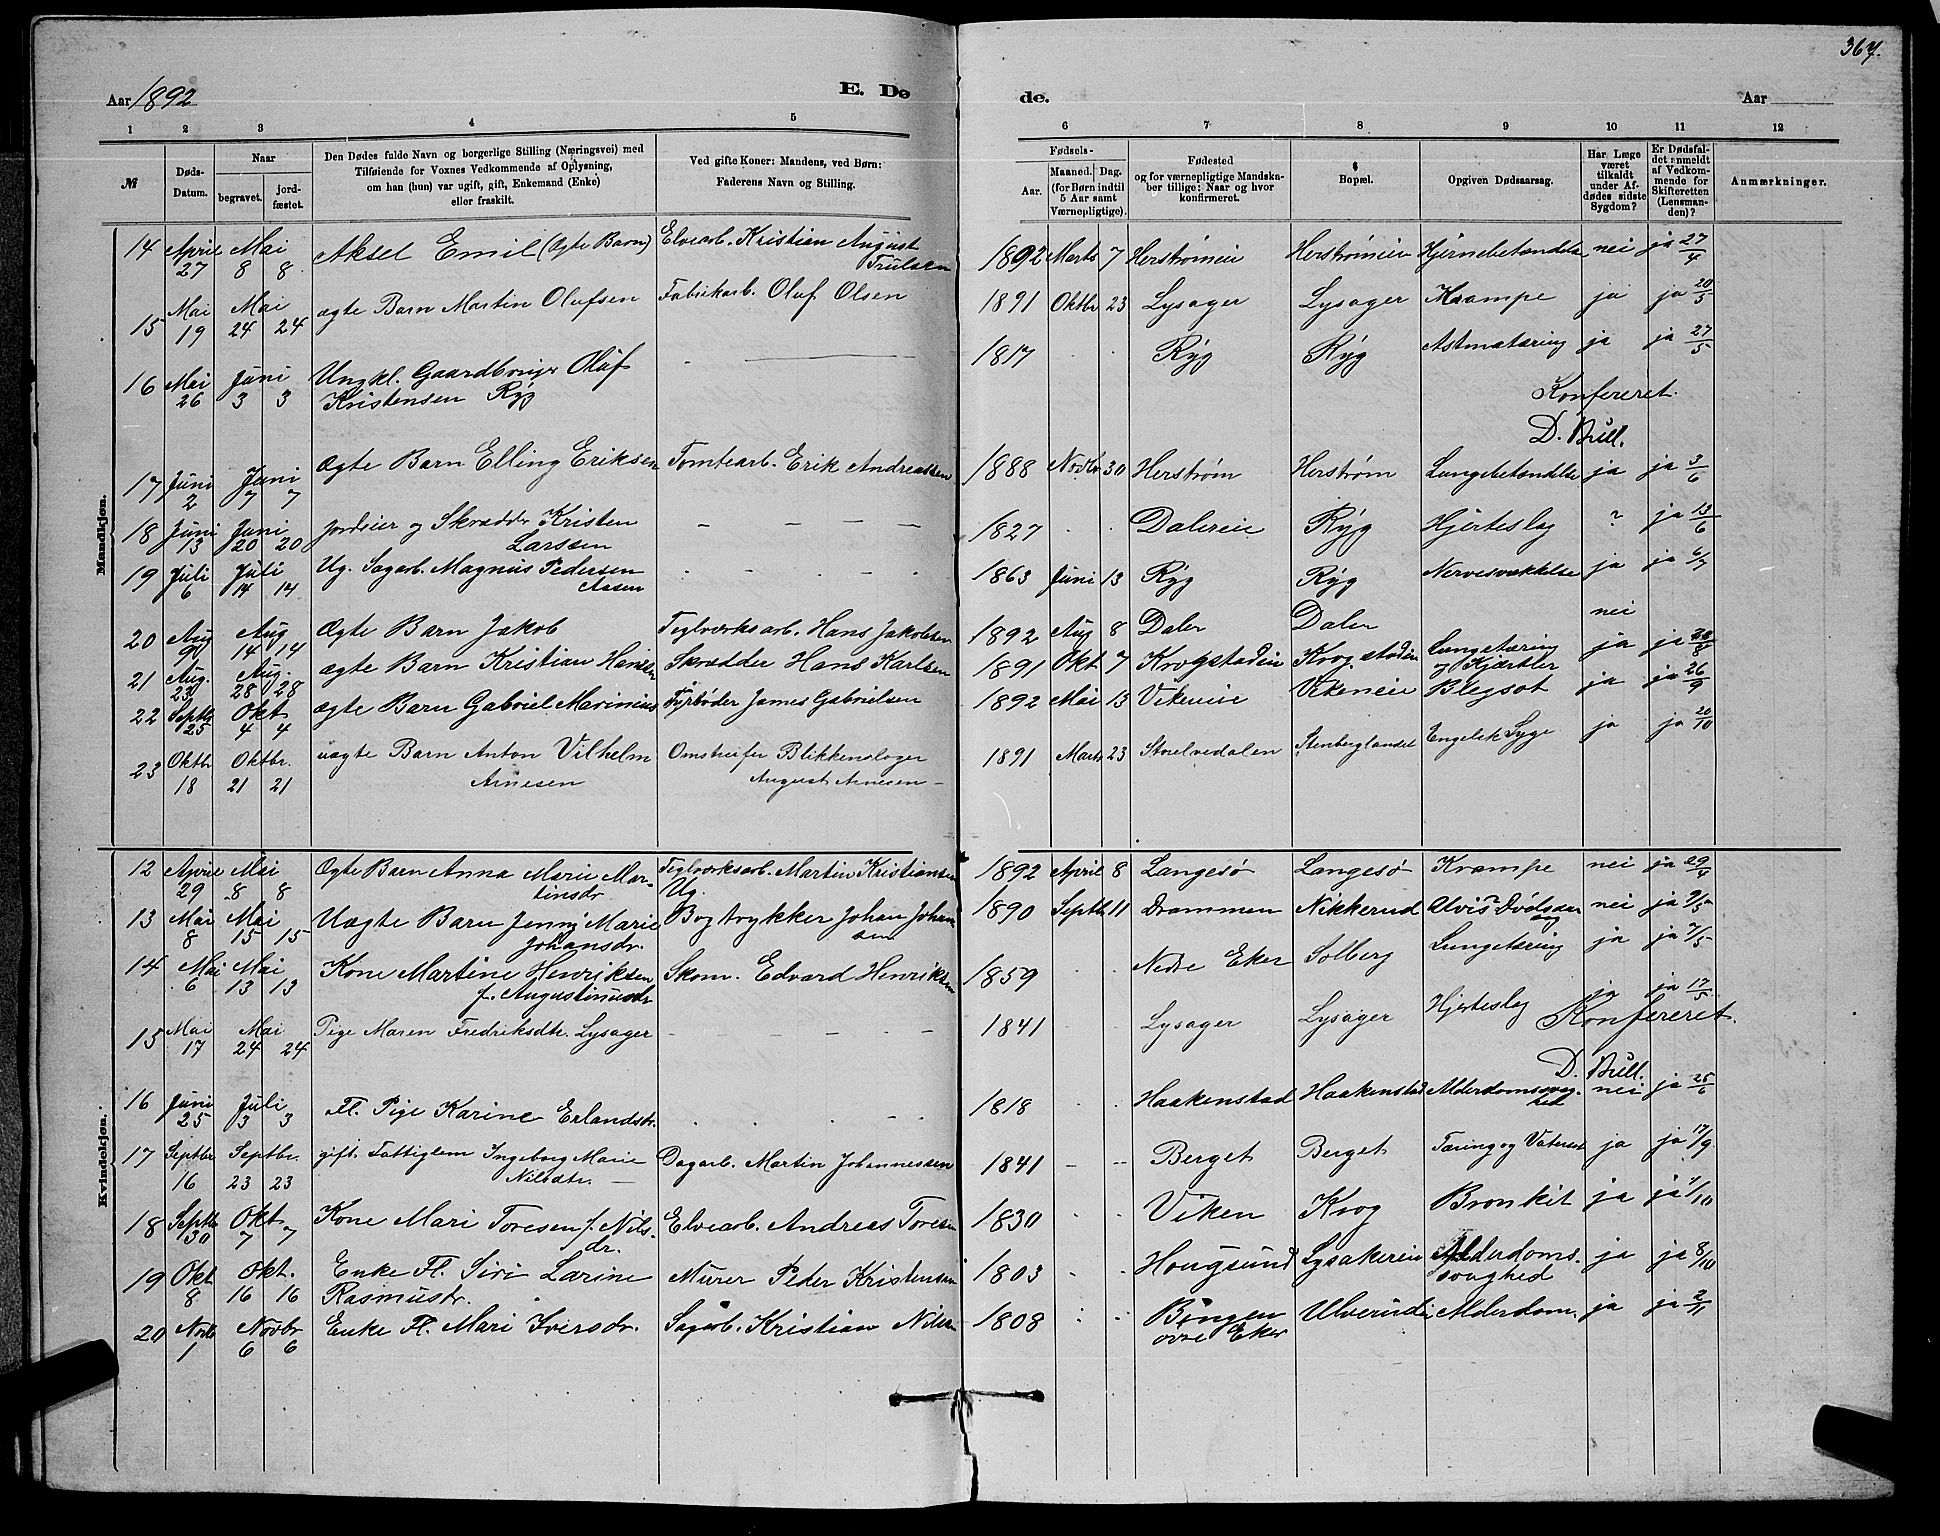 367.
Aar 1892 E. Dø de. Aar
1 2 3 4 5 6 7 8 9 10 11 12
№ Døds-Datum. Naar begravet. jord-fæstet. Den Dødes fulde Navn og borgerlige Stilling (Næringsvei) med Tilføiende for Voxnes Vedkommende af Oplysning, om han (hun) var ugift, gift, Enkemand (Enke) eller fraskilt. Ved gifte Koner: Mandens, ved Børn: Faderens Navn og Stilling. Fødsels- Aar. Maaned. Dag. (for Børn indtil 5 Aar samt Værnepligtige). Fødested og for værnepligtige Mandskaber tillige: Naar og hvor konfirmeret. Bopæl. Opgiven Dødsaarsag. Har Læge været tilkaldt under Afdødes sidste Sygdom? Er Dødsfaldet anmeldt af Vedkommende for Skifteretten (Lensmanden)? Anmærkninger.
Mandkjøn.
14 April 27 Mai 8 8 Aksel Emil (Ægte Barn) Elvearb. Kristian August Trulsen 1892 Marts 7 Herstrømeie Herstrømeie Hjernebetændelse nei ja 27/4
15 Mai 19 Mai 24 24 ægte Barn Martin Olufsen Fabrikarb. Oluf Olsen 1891 Oktbr 23 Lysager Lysager Krampe ja ja 20/5
16 Mai 26 Juni 3 3 Ungkl. Gaardbruger Oluf Kristensen Ryg - 1817 Ryg Ryg Astmatæring ja ja 27/5
Konfereret.
D. Bull.
17 Juni 2 Juni 7 7 Ægte Barn Elling Eriksen Tomtearb. Erik Andreassen 1888 Novbr 30 Herstrøm Herstrøm Lungebetændelse ja ja 3/6
18 Juni 13 Juni 20 20 Jordeier og Skrædder Kristen Larssen - - - - 1827 Dalereie Ryg Hjerteslag ? ja 13/6
19 Juli 6 Juli 14 14 Ug. Sagarb. Magnus Pedersen Aasen - - - - 1863 Juni 13 Ryg Ryg Nervesvækkelse ja ja 6/7
20 Aug 9 Aug 14 14 Ægte Barn Jakob Teglværksarb. Hans Jakobsen 1892 Aug 8 Daler Daler nei
21 Aug. 23 Aug. 28 28 ægte Barn Kristian Hansen Skrædder Hans Karlsen 1891 Okt 7 Krogstadeie Krogstadeie Lungetæring og Kjertler ja ja
22 Septbr 25 Okt 4 4 ægte Barn Gabriel Marinius Fyrbøder James Gabrielsen 1892 Mai 13 Vikeneie Vikeneie Blegsot ja ja 26/9
23 Oktbr 18 Oktbr. 21 21 uægte Barn Anton Vilhelm Arnesen Omstreifer Blikkenslager August Arnesen - 1891 Marts 23 Storelvedalen Stenberglandet Engelsk Syge ja ja 20/10
Kvindekjøn.
12 April 29 Mai 8 8 Ægte Barn Anna Marie Martinsdr Teglværksarb. Martin Kristiansen 1892 April 8 Langesø Langesø Krampe nei ja 29/4
13 Mai 8 Mai 15 15 Uægte Barn Jenny Marie Johansdr. Ug. Bogtrykker Johan Johansen 1890 Septbr 11 Drammen Nikkerud Uvis Dødsaarsag nei ja 9/5
14 Mai 6 Mai 13 13 Kone Martine Henriksen f. Augustinusdr Skom. Edvard Henriksen 1859 Nedre Eker Solberg Lungetæring ja ja 7/5
15 Mai 17 Mai 24 24 Pige Maren Fredriksdtr. Lysager - - - - 1841 Lysager Lysager Hjerteslag ja ja 17/5
Konfereret.
D. Bull.
16 Juni 25 Juli 3 3 Fl. Pige Karine Erlandsdr. 1818 Haakenstad Haakenstad Alderdomssvaghed nei ja 25/6
17 Septbr 16 Septbr. 23 23 gift. Fattiglem Ingeborg Marie Nilsdtr. - Dagarb. Martin Johannessen 1841 - - Berget Berget Tæring og Vatersot ja ja 17/9
18 Septbr 30 Okt 7 7 Kone Mari Toresen f. Nilsdr. Elvearb. Andreas Toresen 1830 Viken Krog Bronkit ja ja 1/10
19 Okt 8 Okt. 16 16 Enke Fl. Siri Larine Rasmusdr. Murer Peder Kristensen 1803 Hougsund Lysakereie Alderdomssvaghed ja ja 8/10
20 Novb 1 Novbr 6 6 Enke Fl. Mari Iversdr. Sagarb. Kristian Nilsen 1808 Bingen øvre Eker Ulverudei Alderdom. ja ja 2/11